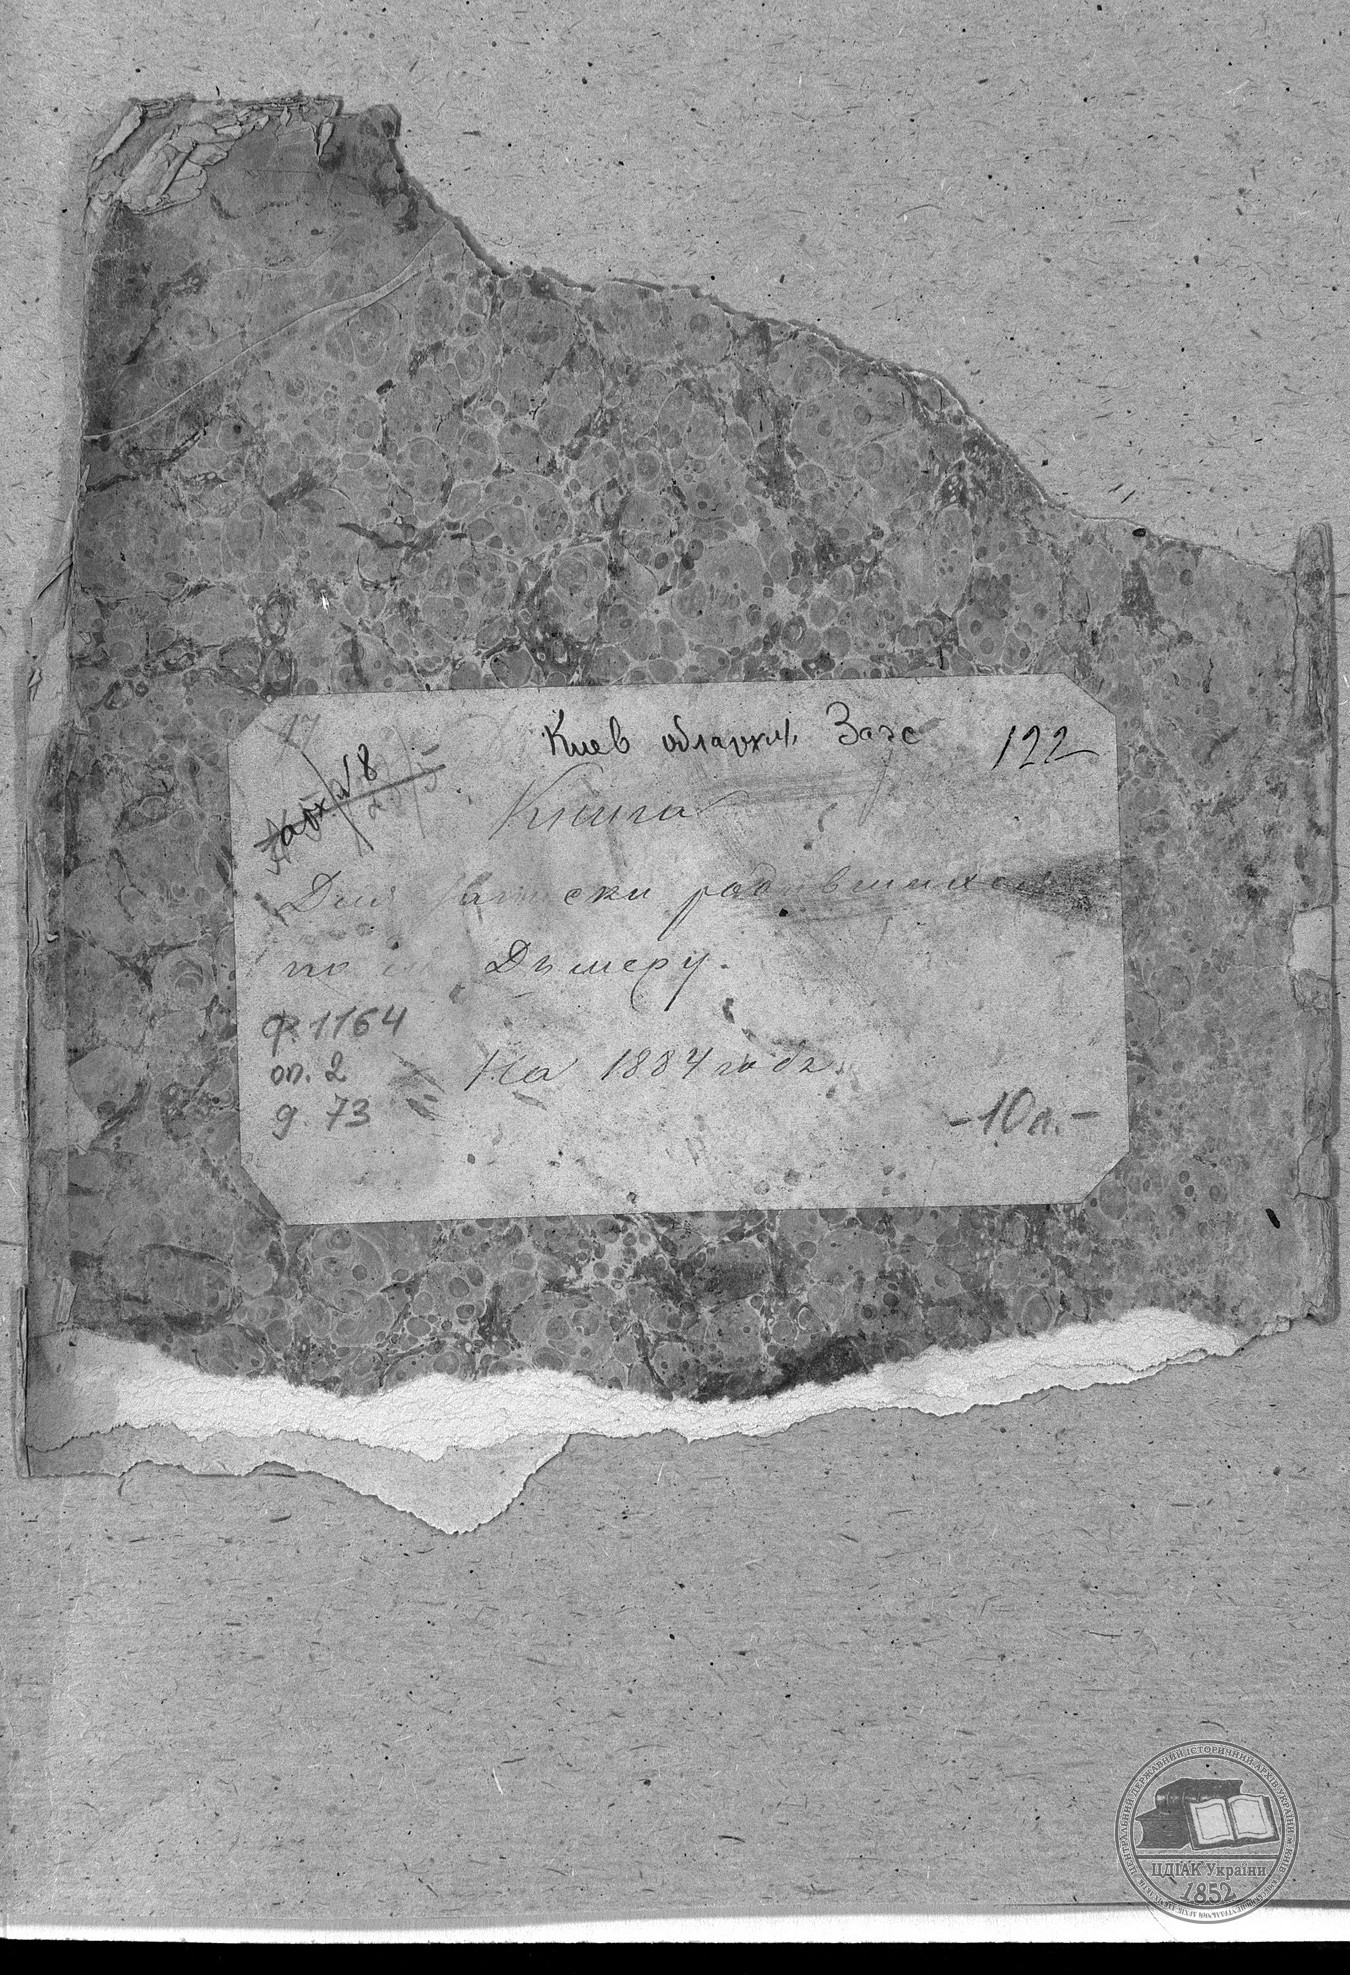 Киев облархив Загс 122
Книга
Для записки родившихся
по м. Дымеру.
ф. 1164
оп. 2
На 1884 годъ.
д. 73
-10 л.-
ЦЕНТРАЛЬНИЙ ДЕРЖАВНИЙ ІСТОРИЧНИЙ АРХІВ УКРАЇНИ м. КИЇВ
ЦДІАК України
1852